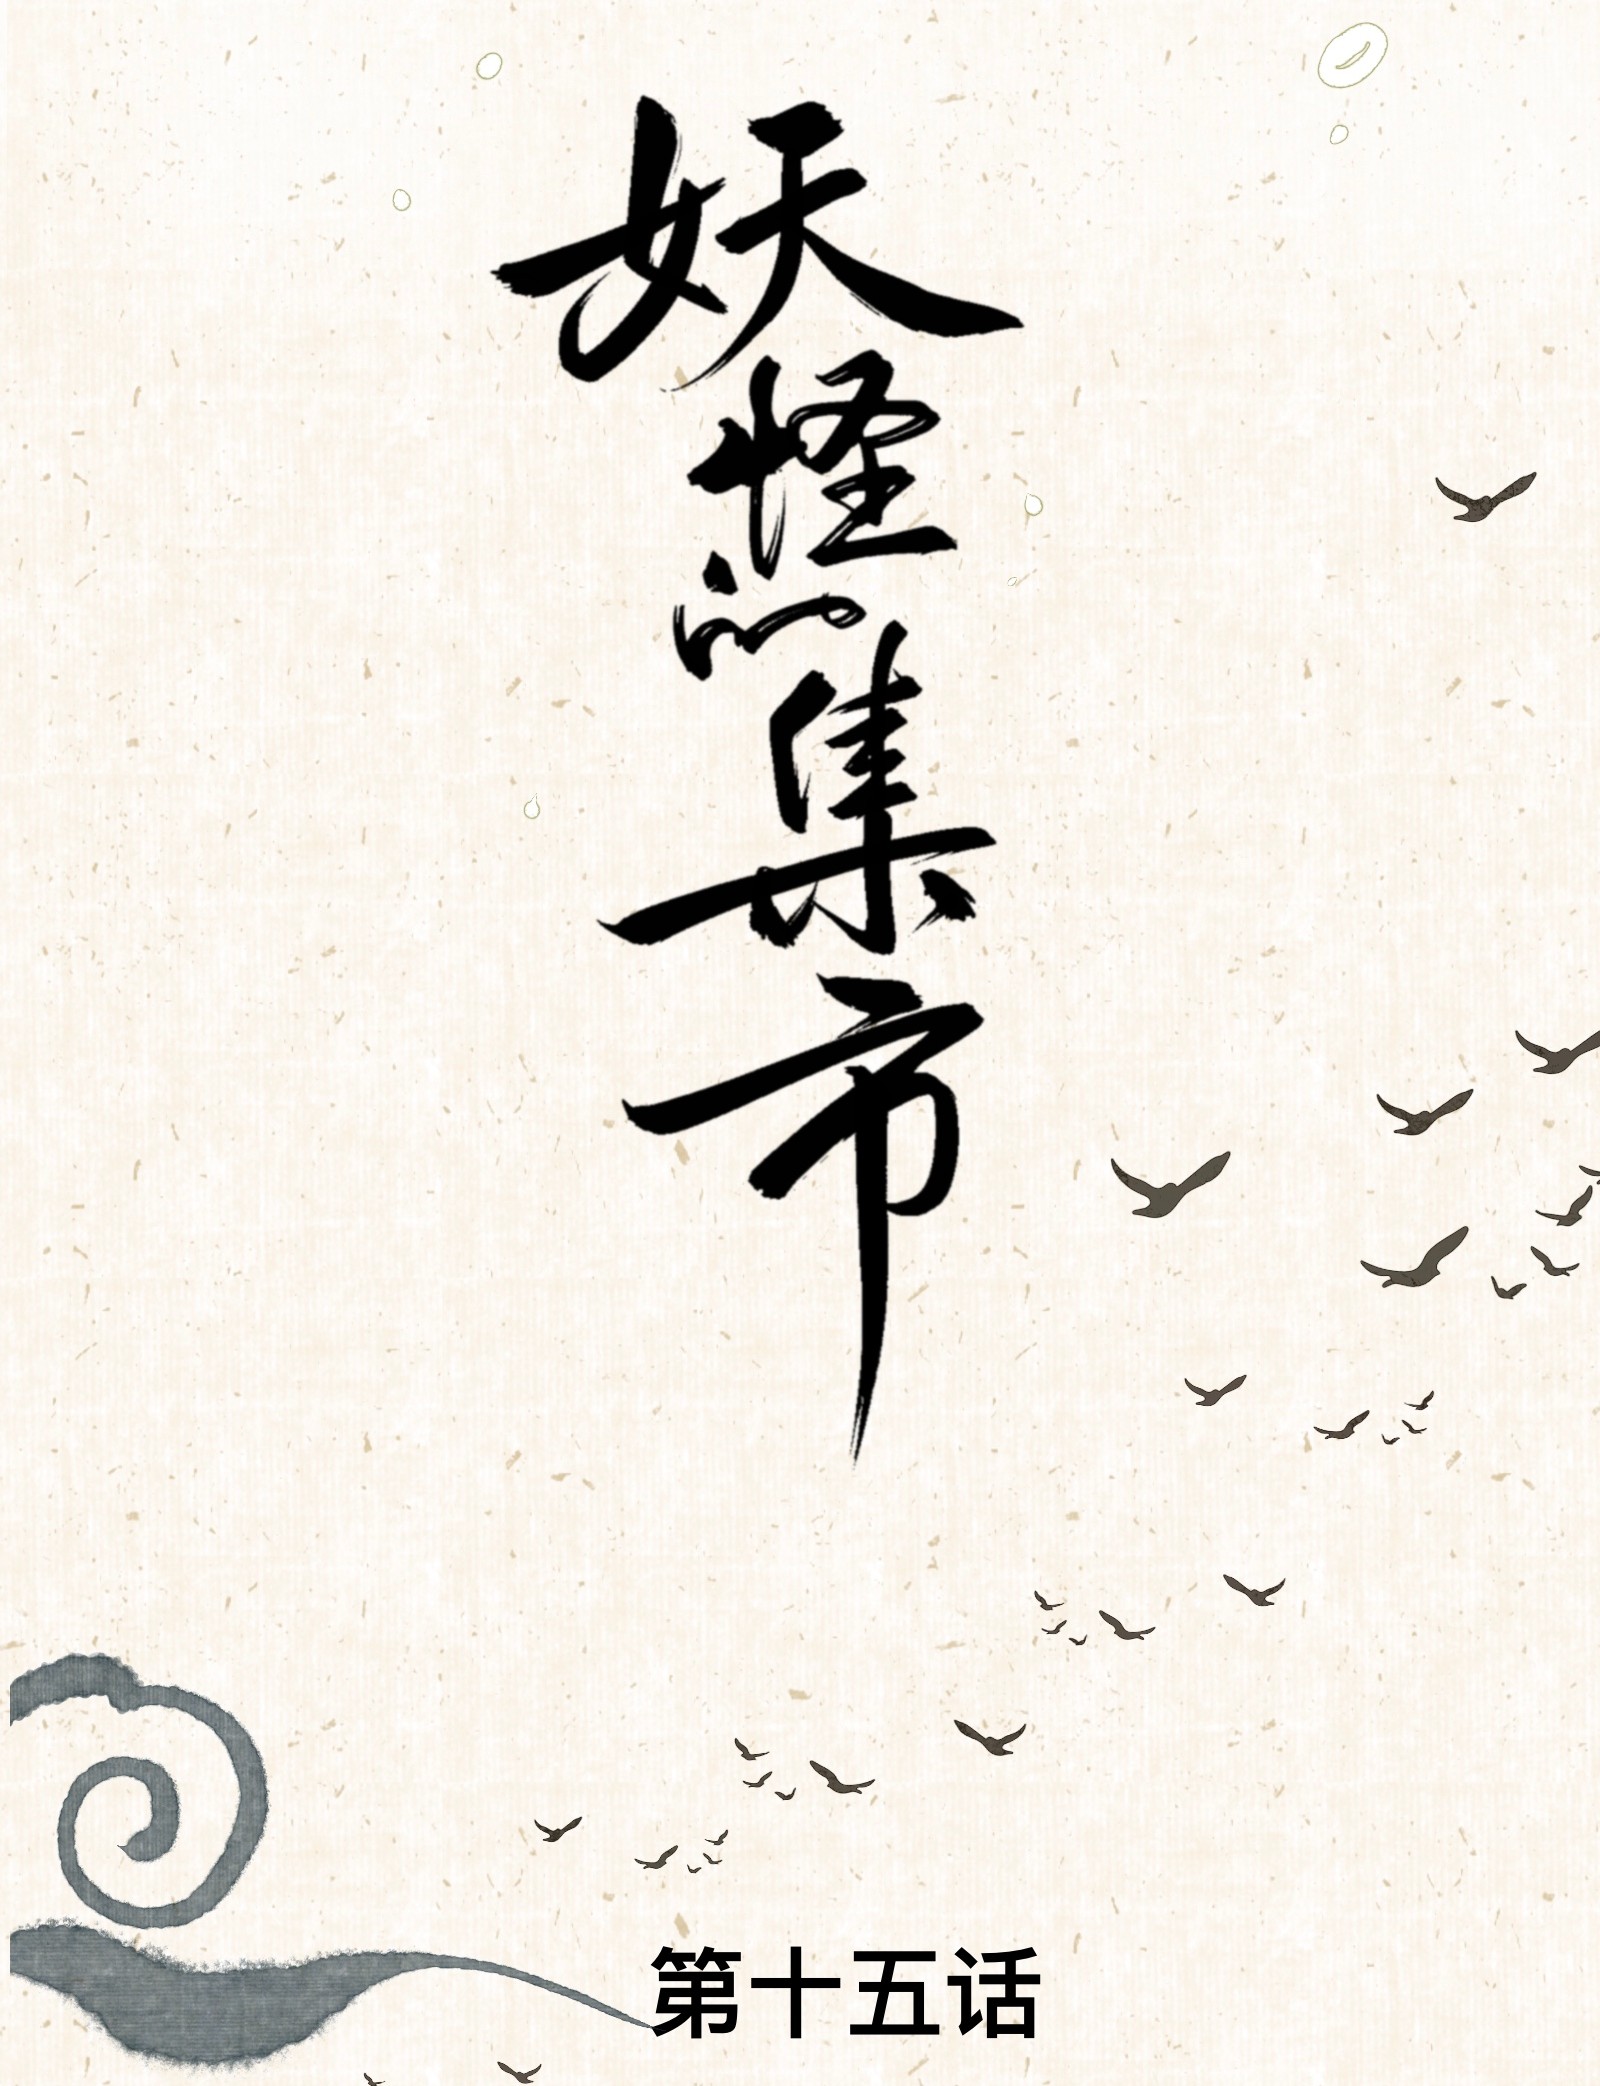 妖怪的集市
第十五话